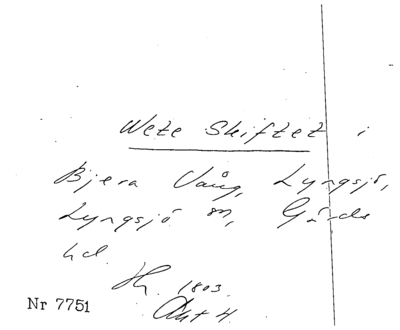 Wete Skiftet i
Bjera Vång, Lyngsjö,
Lyngsjö sn, Gärds
hd.
Hh. 1803.
Akt 4.
Nr 7751